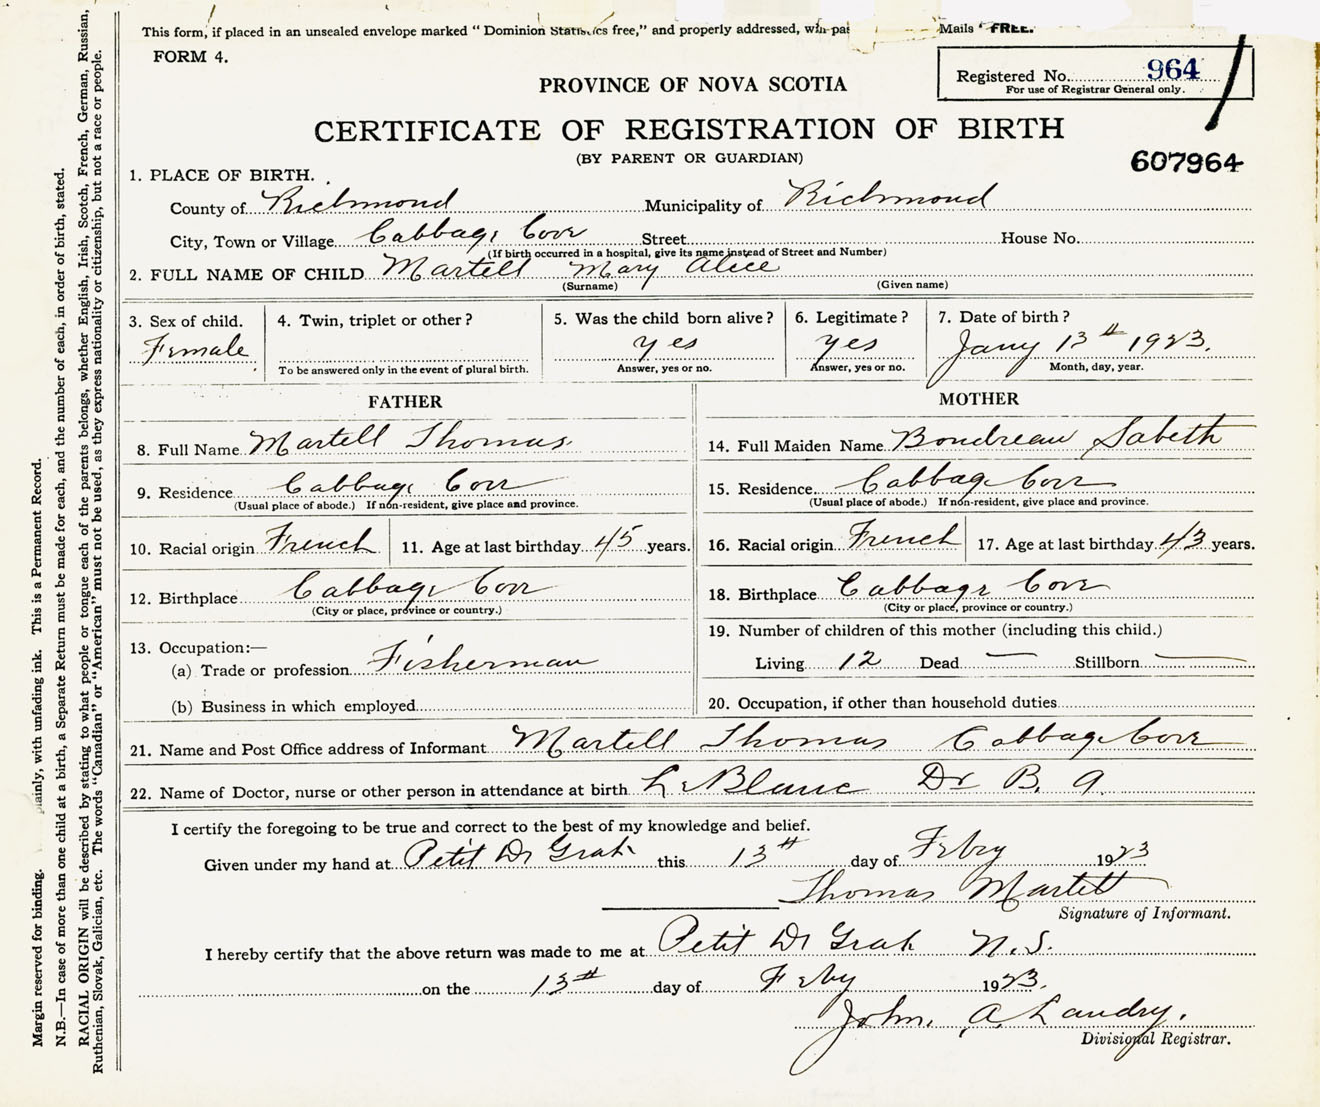 This form, if placed in an unsealed envelope marked “ Dominion Statistics free,” and properly addressed, will pas Mails FREE.
FORM 4.
Registered No. 964
For use of Registrar General only.
PROVINCE OF NOVA SCOTIA
CERTIFICATE OF REGISTRATION OF BIRTH
(BY PARENT OR GUARDIAN)
607964
1. PLACE OF BIRTH.
County of Richmond Municipality of Richmond
City, Town or Village Cabbage Cove Street House No.
(If birth occurred in a hospital, give its name instead of Street and Number)
2. FULL NAME OF CHILD Martell Mary Alice
(Surname) (Given name)
3. Sex of child. 4. Twin, triplet or other? 5. Was the child born alive? 6. Legitimate? 7. Date of birth?
Female yes yes Jany 13th 1923.
To be answered only in the event of plural birth. Answer, yes or no. Answer, yes or no. Month, day, year.
FATHER MOTHER
8. Full Name Martell Thomas 14. Full Maiden Name Boudreau Sabeth
9. Residence Cabbage Cove 15. Residence Cabbage Cove
(Usual place of abode.) If non-resident, give place and province. (Usual place of abode.) If non-resident, give place and province.
10. Racial origin French 11. Age at last birthday 45 years. 16. Racial origin French 17. Age at last birthday 43 years.
12. Birthplace Cabbage Cove 18. Birthplace Cabbage Cove
(City or place, province or country.) (City or place, province or country.)
13. Occupation:— 19. Number of children of this mother (including this child.)
(a) Trade or profession Fisherman Living 12 Dead — Stillborn —
(b) Business in which employed 20. Occupation, if other than household duties
21. Name and Post Office address of Informant Martell Thomas Cabbage Cove
22. Name of Doctor, nurse or other person in attendance at birth LeBlanc Dr B. A.
I certify the foregoing to be true and correct to the best of my knowledge and belief.
Given under my hand at Petit De Grat this 13th day of Feby 1923
Thomas Martell
Signature of Informant.
I hereby certify that the above return was made to me at Petit De Grat N.S.
on the 13th day of Feby 1923.
John. A. Landry.
Divisional Registrar.
Margin reserved for binding. plainly, with unfading ink. This is a Permanent Record.
N.B.—In case of more than one child at a birth, a Separate Return must be made for each, and the number of each, in order of birth, stated.
RACIAL ORIGIN will be described by stating to what people or tongue each of the parents belongs, whether English, Irish, Scotch, French, German, Russian,
Ruthenian, Slovak, Galician, etc. The words “Canadian” or “American” must not be used, as they express nationality or citizenship, but not a race or people.